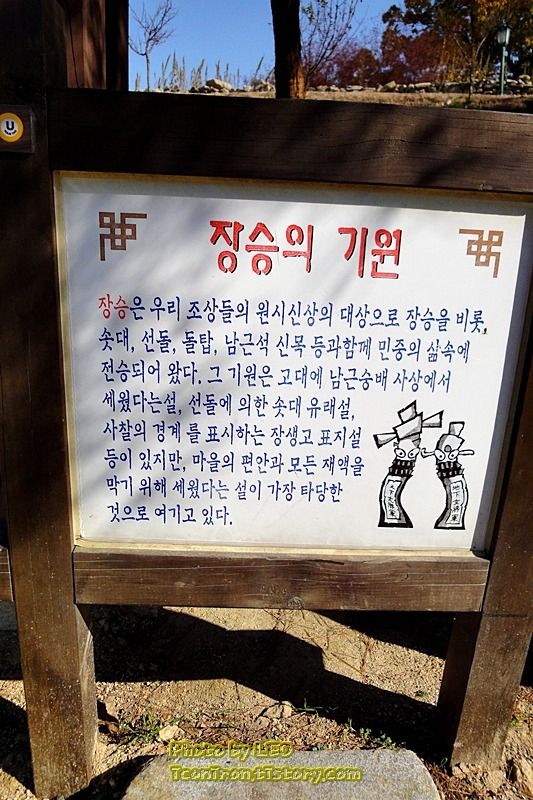 U
장승의 기원
장승은 우리 조상들의 원시신상의 대상으로 장승을 비롯,
솟대, 선돌, 돌탑, 남근석 신목 등과함께 민중의 삶속에
전승되어 왔다. 그 기원은 고대에 남근숭배 사상에서
세웠다는설, 선돌에 의한 솟대 유래설,
사찰의 경계 를 표시하는 장생고 표지설
등이 있지만, 마을의 편안과 모든 재액을
막기 위해 세웠다는 설이 가장 타당한
것으로 여기고 있다.
地下女將軍
Photo by LEO
Tconfront.tistory.com